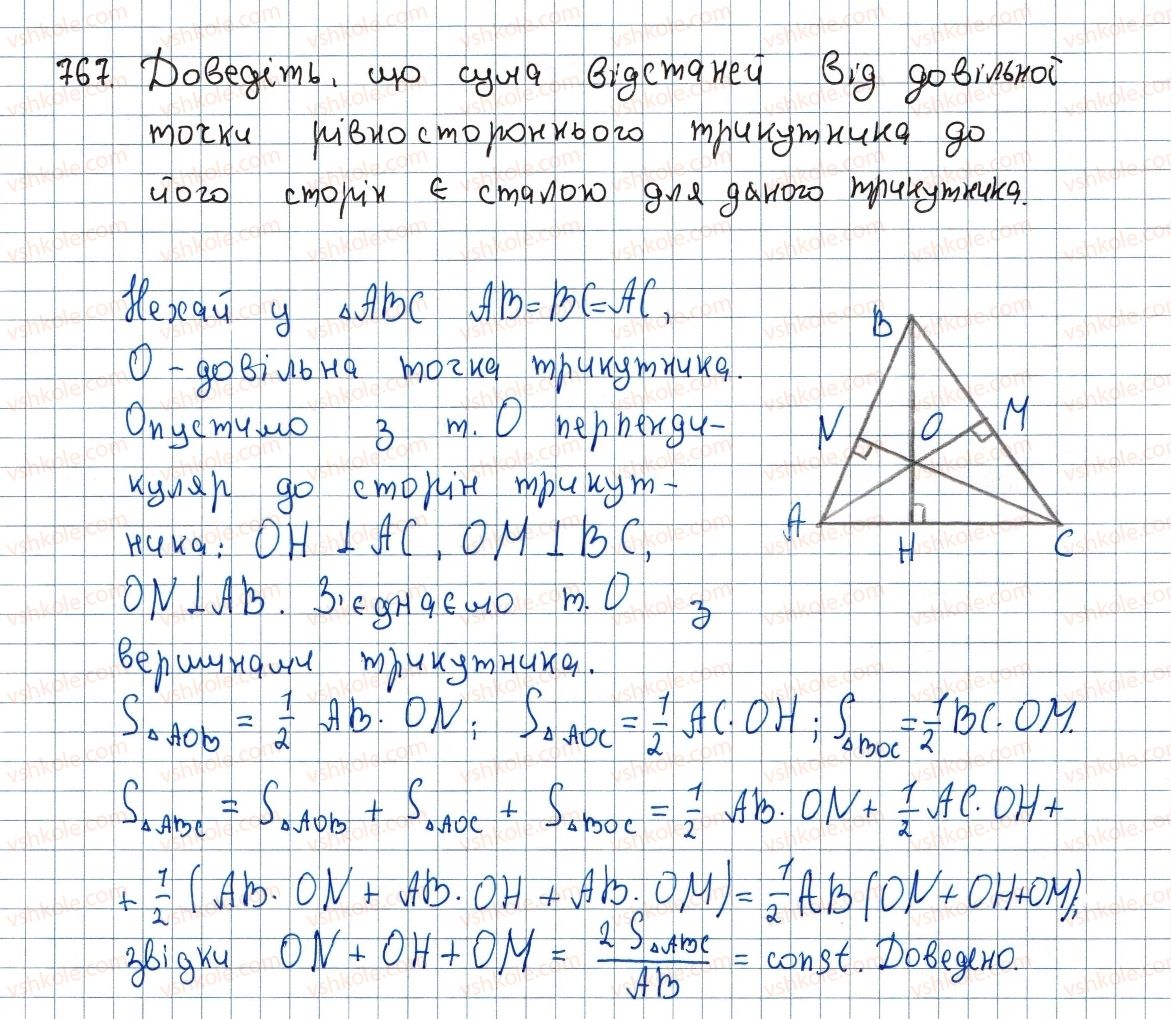 767. Доведіть, що сума відстаней від довільної
точки рівностороннього трикутника до
його сторін є сталою для даного трикутника.
Нехай у △ABC AB=BC=AC,
O - довільна точка трикутника.
Опустимо з т. O перпенди-
куляр до сторін трикут-
ника: OH ⊥ AC, OM ⊥ BC,
ON ⊥ AB. З'єднаємо т. O з
вершинами трикутника.
B
N O M
A H C
S△AOB = 1/2 AB · ON; S△AOC = 1/2 AC · OH; S△BOC = 1/2 BC · OM.
S△ABC = S△AOB + S△AOC + S△BOC = 1/2 AB · ON + 1/2 AC · OH +
+ 1/2 (AB · ON + AB · OH + AB · OM) = 1/2 AB (ON + OH + OM),
звідки ON + OH + OM = 2 S△ABC / AB = const. Доведено.
vshkole.com